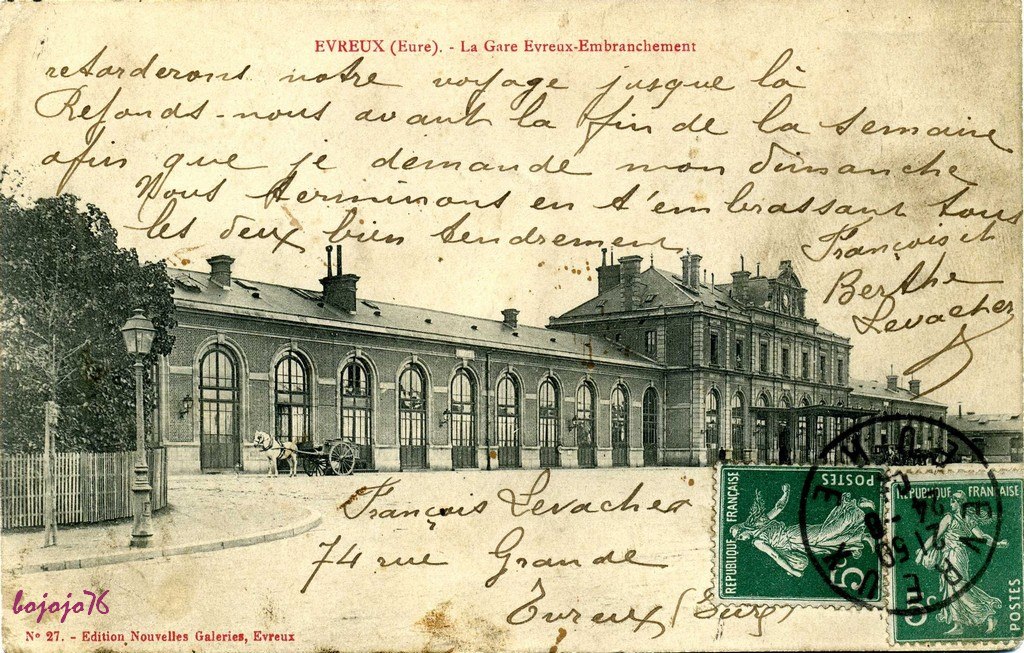 EVREUX (Eure). - La Gare Evreux-Embranchement
retarderons notre voyage jusque là
Réponds-nous avant la fin de la semaine
afin que je demande mon Dimanche
Nous terminons en t'embrassant tous
les deux bien tendrement
François et
Berthe
Levacher
François Levacher
74 rue Grande
Evreux (Eure)
REPUBLIQUE FRANÇAISE
POSTES
5c
REPUBLIQUE FRANÇAISE
POSTES
5c
EVREUX
21 50
24 -9
EURE
bojojo76
Nº 27. - Edition Nouvelles Galeries, Evreux